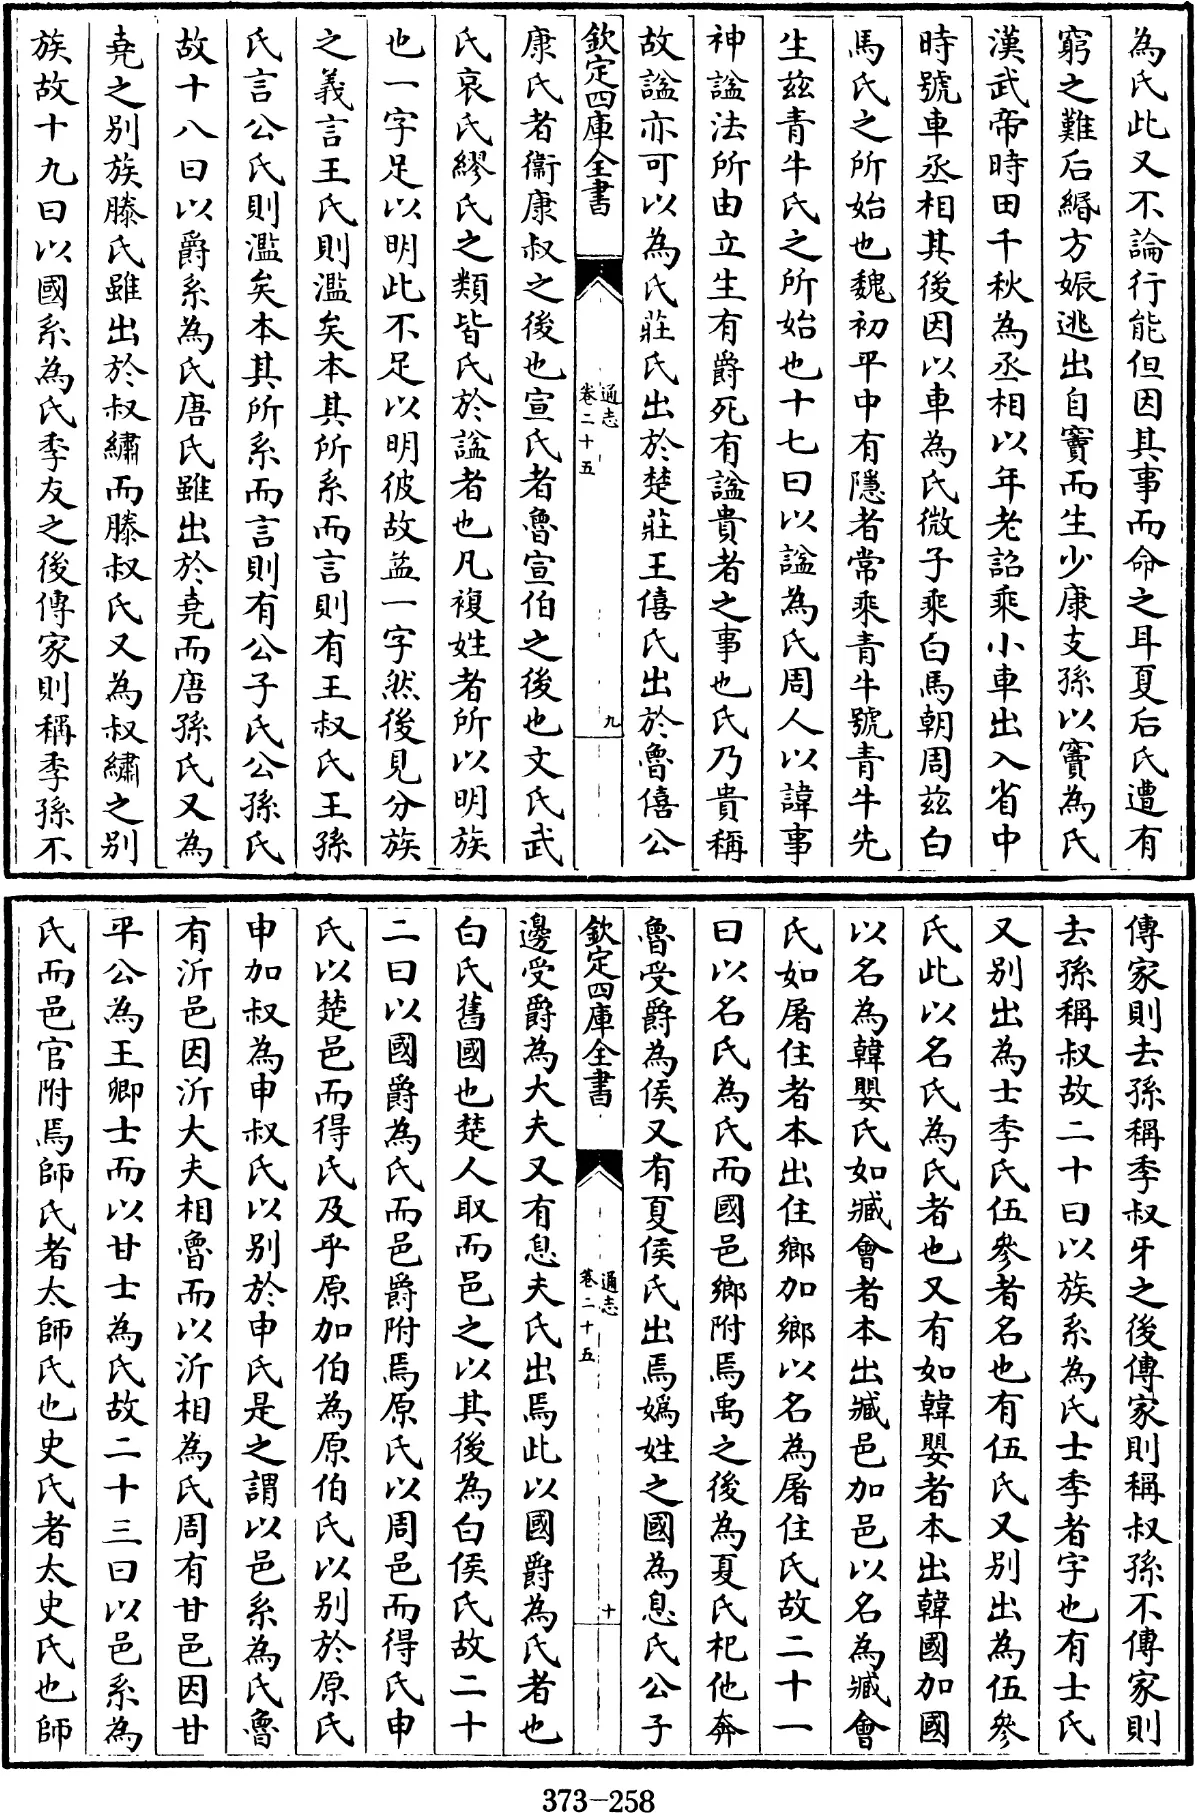 為氏此又不論行能但因其事而命之耳夏后氏遭有
窮之難后緡方娠逃出自竇而生少康支孫以竇為氏
漢武帝時田千秋為丞相以年老詔乘小車出入省中
時號車丞相其後因以車為氏微子乘白馬朝周茲白
馬氏之所始也魏初平中有隱者常乘青牛號青牛先
生茲青牛氏之所始也十七曰以諡為氏周人以諱事
神諡法所由立生有爵死有諡貴者之事也氏乃貴稱
故諡亦可以為氏莊氏出於楚莊王僖氏出於魯僖公
欽定四庫全書
通志
卷二十五
九
康氏者衞康叔之後也宣氏者魯宣伯之後也文氏武
氏哀氏繆氏之類皆氏於諡者也凡複姓者所以明族
也一字足以明此不足以明彼故益一字然後見分族
之義言王氏則濫矣本其所系而言則有王叔氏王孫
氏言公氏則濫矣本其所系而言則有公子氏公孫氏
故十八曰以爵系為氏唐氏雖出於堯而唐孫氏又為
堯之別族滕氏雖出於叔繡而滕叔氏又為叔繡之別
族故十九曰以國系為氏季友之後傳家則稱季孫不
傳家則去孫稱季叔牙之後傳家則稱叔孫不傳家則
去孫稱叔故二十曰以族系為氏士季者字也有士氏
又別出為士季氏伍參者名也有伍氏又別出為伍參
氏此以名氏為氏者也又有如韓嬰者本出韓國加國
以名為韓嬰氏如臧會者本出臧邑加邑以名為臧會
氏如屠住者本出住鄉加鄉以名為屠住氏故二十一
曰以名氏為氏而國邑鄉附焉禹之後為夏氏杞他奔
魯受爵為侯又有夏侯氏出焉媯姓之國為息氏公子
欽定四庫全書
通志
卷二十五
十
邊受爵為大夫又有息夫氏出焉此以國爵為氏者也
白氏舊國也楚人取而邑之以其後為白侯氏故二十
二曰以國爵為氏而邑爵附焉原氏以周邑而得氏申
氏以楚邑而得氏及乎原加伯為原伯氏以別於原氏
申加叔為申叔氏以別於申氏是之謂以邑系為氏魯
有沂邑因沂大夫相魯而以沂相為氏周有甘邑因甘
平公為王卿士而以甘士為氏故二十三曰以邑系為
氏而邑官附焉師氏者太師氏也史氏者太史氏也師
373-258